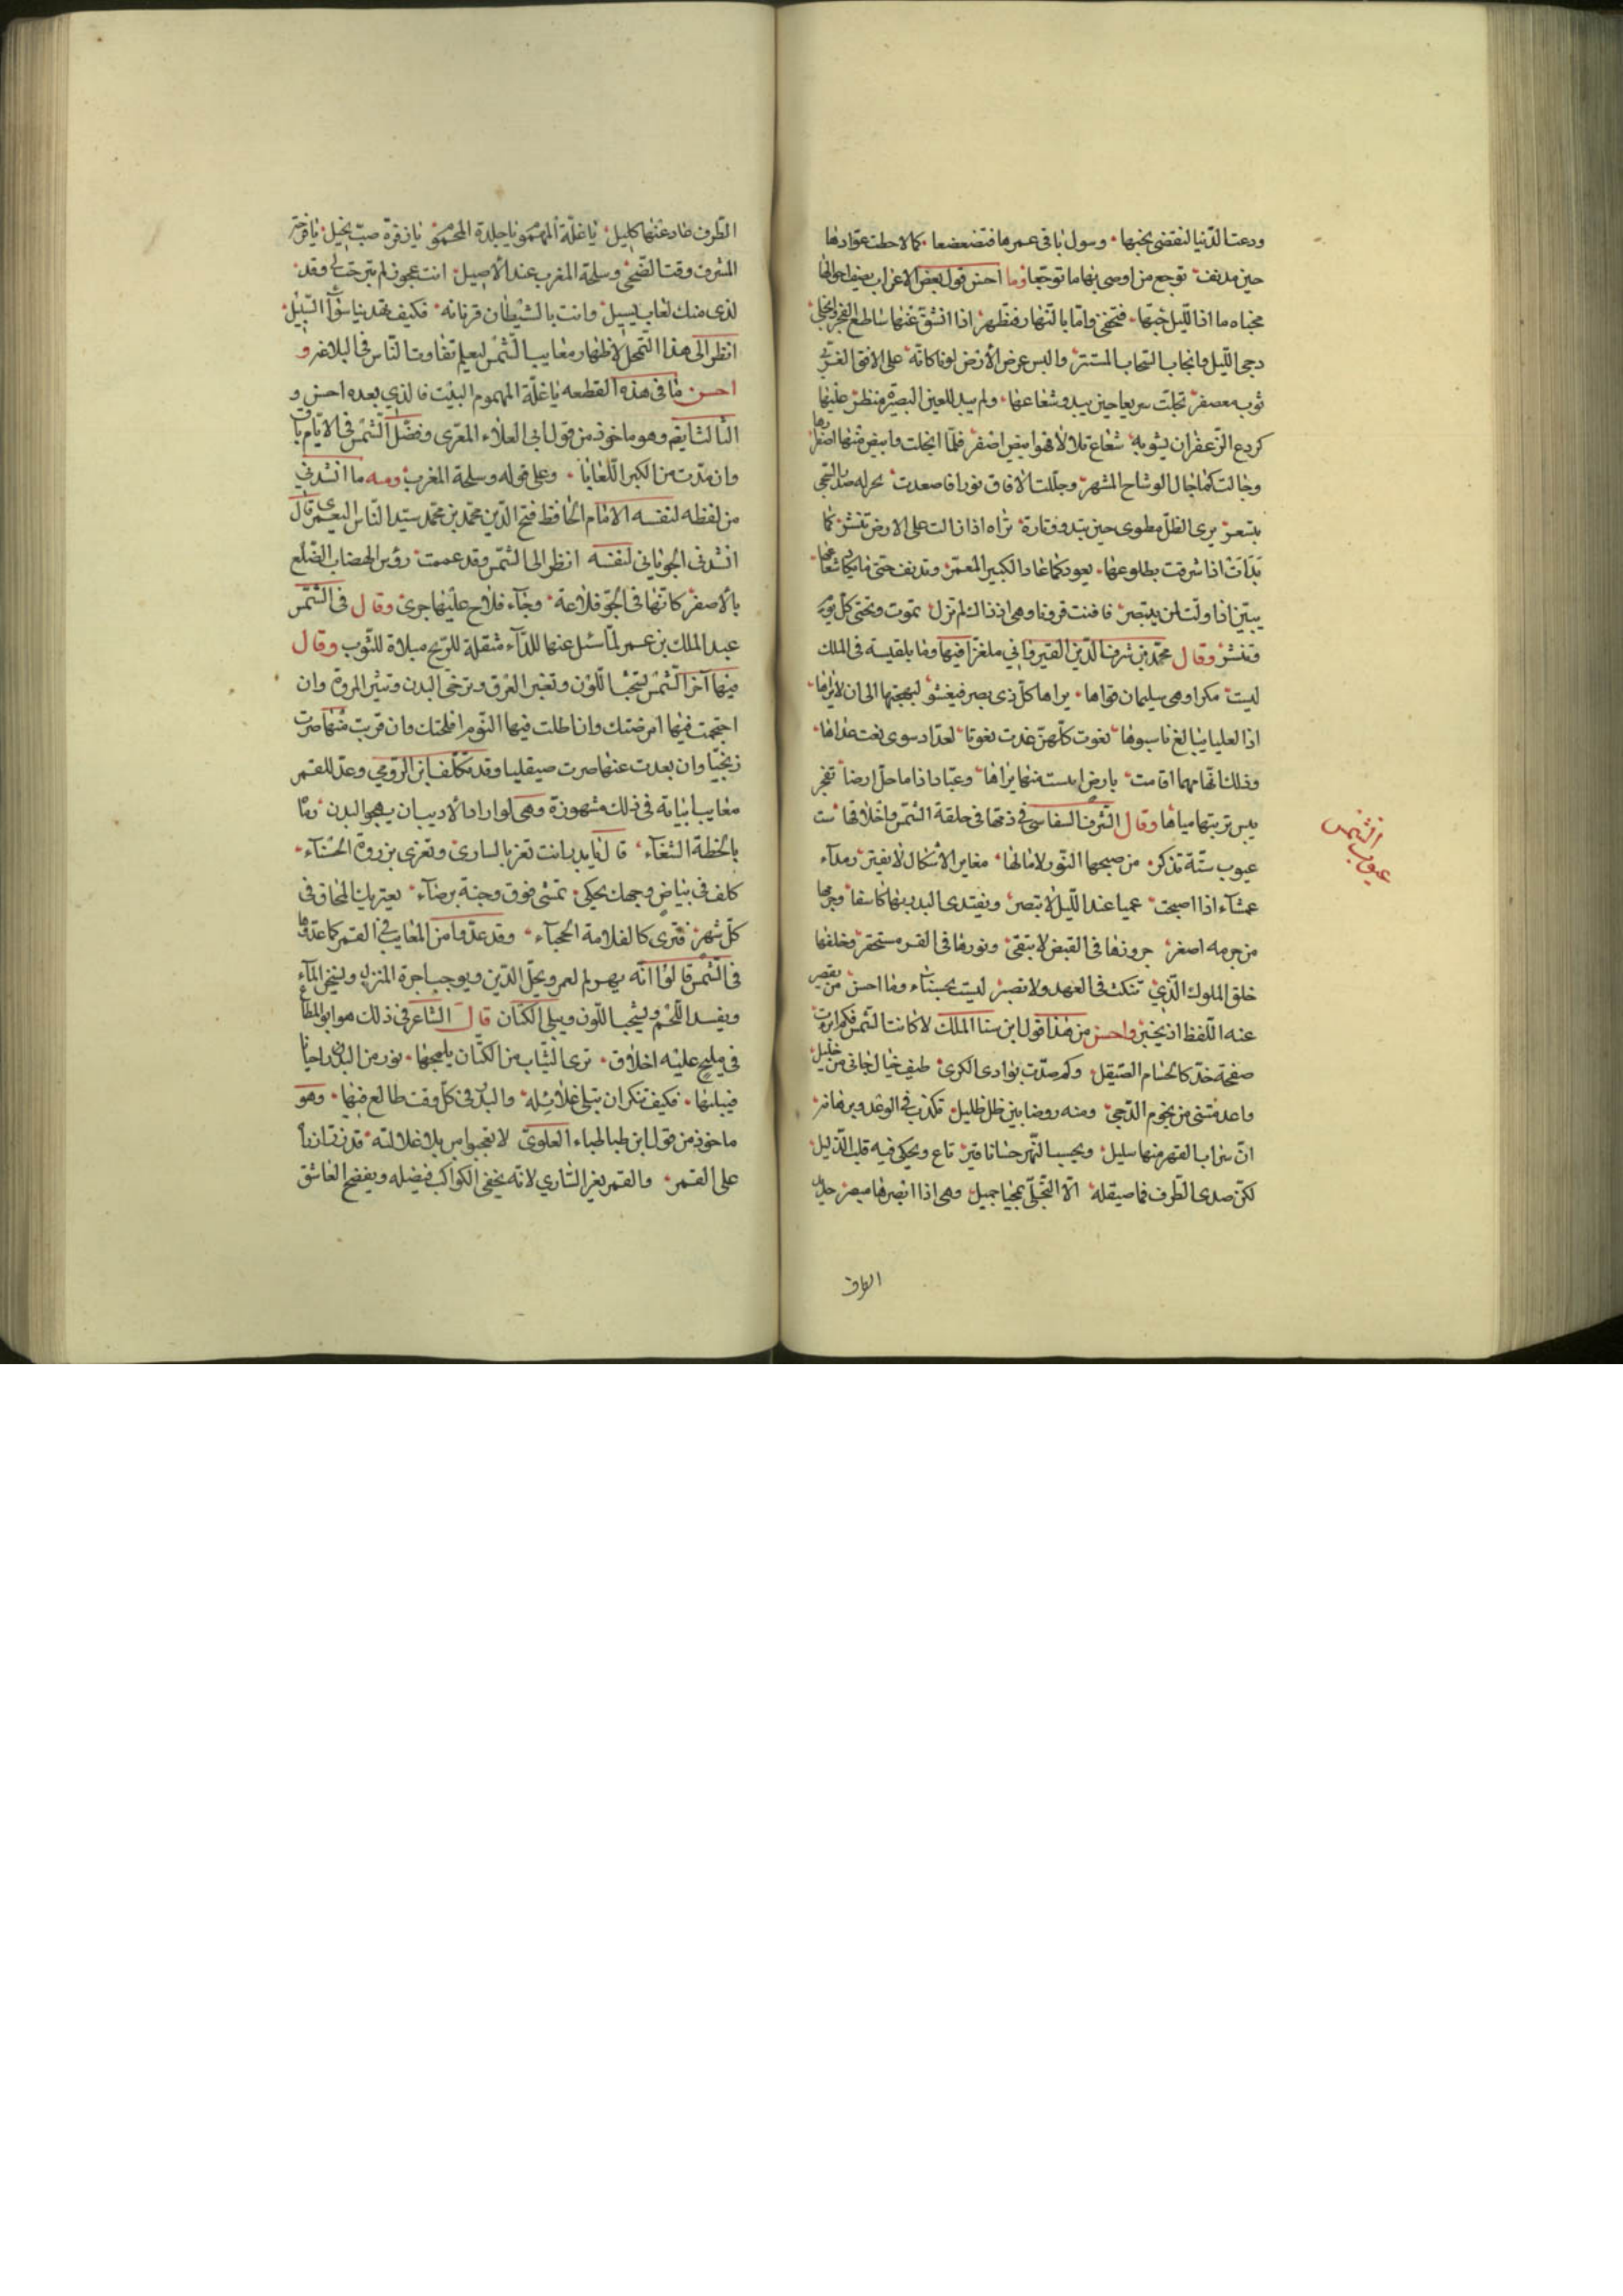 ودعت الدنيا لتقضى نحبها وسول باقى عمرها فتضعضعا كما لاحظت عوادها
حين مدنف توجع من اوصى بها ما توجعا وما احسن قول بعض الاعراب يصف احوالها
مخباه ما اذا الليل جنها فتخفى واما بالنهار فتظهر اذا انشق عنها ساطع الفجر وانجلى
دجى الليل وانجاب الحجاب المستتر والبس عرض الارض لونا كانه على الافق الغربى
ثوب معصفر تجلت سريعا حين يبدو شعاعها ولم يبد للعين البصيرة منظر عليها
كردع الزعفران يشوبه شعاع تلالا فهو ابيض اصفر فلما انجلت وابيض منها اصفرارها
وجالت كما جال الوشاح المشهر وجللت الافاق نورا فاصعدت بحر له صدر الضحى
يتسعر يرى الظل مطوى حين تبدو وتارة تراه اذا زالت على الارض تنشر كما
بدات اذا شرقت بطلوعها يعود كما عاد الكبير المعمر وتدنف حتى ما يكاد شعاعها
يبين اذا ولت لمن يتبصر فافنت قرونا وهى اذ ذاك لم تزل تموت وتحيى كل يوم
وتنشر وقال محمد بن شرف الدين القيروانى ملغزا فيها وما بلقيسة فى الملك
ليست مكرا وهى سليمان قواها يراها كل ذى بصر فيغشو لبهجتها الى ان لا يراها
اذا العليا يبالغ ناسبوها نعوت كلهن غدت نعوتا لعداد سوى نعت عداها
وذلك انها مهما اقامت بارض لست منها يراها وعباد اذا ما حل ارضا تفجر
يبس تربتها مياها وقال الشرف السفاسى فى ذمها فى حلقة الشمس واخلاقها شت
عيوب ستة تذكر من صبحها النور لامالها مغاير الاشكال لا يفتر رمداء
عمشاء اذا اصبحت عميا عند الليل لا تبصر ويغتدى البدر بها كاسفا وجرمها
من جرمه اصغر حرورها فى القيض لا يتقى ونورها فى القر مستحقر وخلفها
خلق الملوك الذى تنكث فى العهد ولا تصبر ليست بحسناء وما احسن من يقصر
عنه اللفظ اذ يخبر واحسن من هذا قول ابن سنا الملك لا كانت الشمس فكم اصدات
صفحة خد كالحسام الصقيل وكم صدت بوادى الكرى طيف خيال جانى من خليل
واعدمتنى من نجوم الدجى ومنه روضا بين ظل ظليل تكذب فى الوعد وبرهانه
ان سراب القفر منها سليل ويحسب النهر حساما فير تاع ويحكى فيه قلب الذليل
لكن صدى الطرف فما صيقله الا التجلى بمحيا جميل وهى اذا ابصرها مبصر حديد
الطرف
عيوب الشمس
الطرف عاد عنها كليل يا غلة المهموم يا جلدة المحموم يا زفرة صب نحيل يا قرحة
المشرق وقت الضحى وسلحة المغرب عند الاصيل انت عجوز لم تبرجت لى وقد
لذى منك لعاب يسيل وانت بالشيطان قرنانه فكيف تهدينا سواء السبيل
انظر الى هذا التمحل لاظهار معايب الشمس ليعلم تفاوت الناس فى البلاغة و
احسن ما فى هذه القطعه يا غلة المهموم البيت فالذى بعده احسن و
الثالث ايضم وهو ماخوذ من قول ابى العلاء المعرى وفضل الشمس فى الايام باق
وان مدت من الكبر اللعابا وعلى قوله وسلحة المغرب ومنه ما انشدنى
من لفظه لنفسه الامام الحافظ فتح الدين محمد بن محمد سيد الناس اليعمرى قال
انشدنى الجونانى لنفسه انظر الى الشمس وقد عممت رؤس الهضاب الضلع
بالاصفر كانها فى الجو فلاعة وجاء فلاح عليها جرى وقال فى الشمس
عبد الملك بن عمر لما سئل عنها للداء مثقلة للريح مبلاة للثوب وقال
فيها آخر الشمس تشحب اللون وتغير العرق وترخى البدن وتثير المرة وان
احتجمت فيها امرضتك وان اطلت فيها النوم افلجتك وان قربت منها صرت
زنجيا وان بعدت عنها صرت صيقليا وقد تكلف ابن الرومى وعد للقمر
معايب ابياته فى ذلك مشهورة وهى لو اراد الاديب ان يهجو البدر رماه
بالخطة الشنعاء قال يا بدر انت تغر بالسارى وتغرى بزروة الحسناء
كلف فى بياض وجهك يحكى نمشى فوق وجنة برصاء يعتريك المحاق فى
كل شهر فترى كالقلامة الحجباء وقد عدوا من المعايب فى القمر كما عدوها
فى الشمس قالوا انه يهرم العمر ويحل الدين ويوجب اجرة المنزل ويسخن الماء
ويفسد اللحم ويشحب اللون ويبلى الكتان قال الشاعر فى ذلك هو ابو المطاع
فى مليح عليه اخلاق ترى الثياب من الكتان يلمحها نور من البدر احيانا
فيبليها فكيف تنكر ان تبلى غلائله والبدر فى كل وقت طالع فيها وهو
ماخوذ من قول ابن طباطباء العلوى لا تعجبوا من بلا غلالته قد زر ازراره
على القمر والقمر يغر السارى لانه يخفى الكواكب فيضله ويفضح العاشق